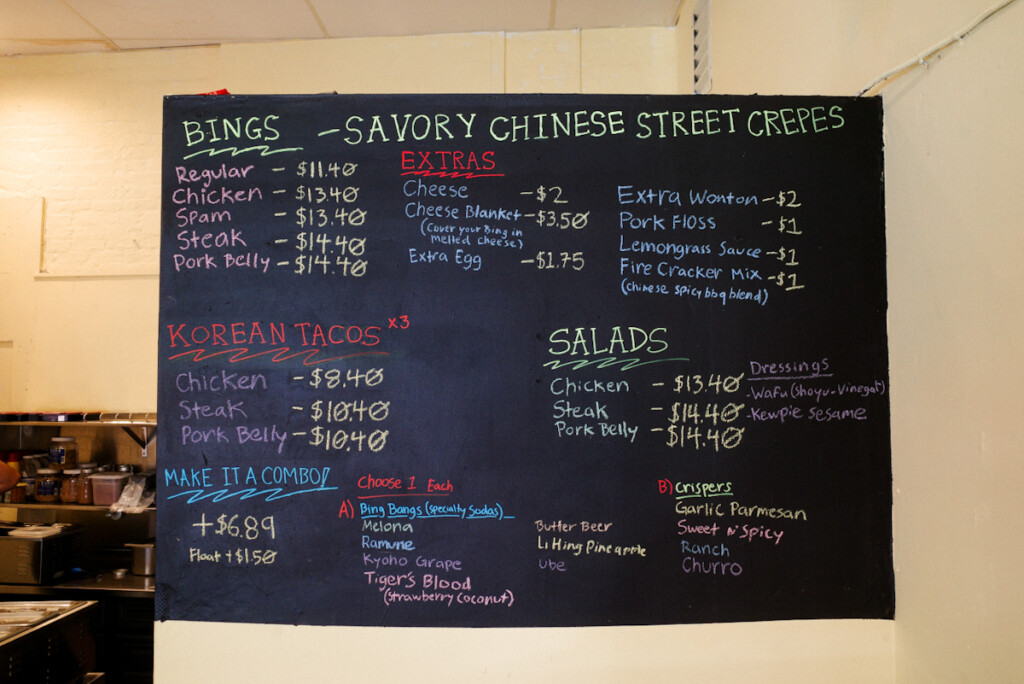 BINGS - SAVORY CHINESE STREET CREPES
Regular - $11.40
Chicken - $13.40
Spam - $13.40
Steak - $14.40
Pork Belly - $14.40
EXTRAS
Cheese - $2
Cheese Blanket - $3.50
(Cover your Bing in
melted cheese)
Extra Egg - $1.75
Extra Wonton - $2
Pork Floss - $1
Lemongrass Sauce - $1
Fire Cracker Mix - $1
(chinese spicy bbq blend)
KOREAN TACOS x3
Chicken - $8.40
Steak - $10.40
Pork Belly - $10.40
SALADS
Chicken - $13.40
Steak - $14.40
Pork Belly - $14.40
Dressings
- Wafu (Shoyu-Vinegat)
- Kewpie Sesame
MAKE IT A COMBO!
+$6.89
Float +$1.50
Choose 1 Each
A) Bing Bangs (specialty Sodas)
Melona
Ramune
Kyoho Grape
Tiger's Blood
(Strawberry Coconut)
Butter Beer
Li Hing Pineapple
Ube
B) Crispers
Garlic Parmesan
Sweet n' Spicy
Ranch
Churro